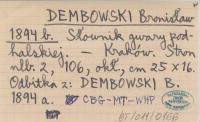 DEMBOWSKI Bronisław
1894 b. Słownik gwary pod-
halskiej. — Kraków. Stron
nlb. 2, 106, okł., cm 25 x 16.
Odbitka z: DEMBOWSKI B.
1894 a. CBG-MT-WHP
BT/011/0166